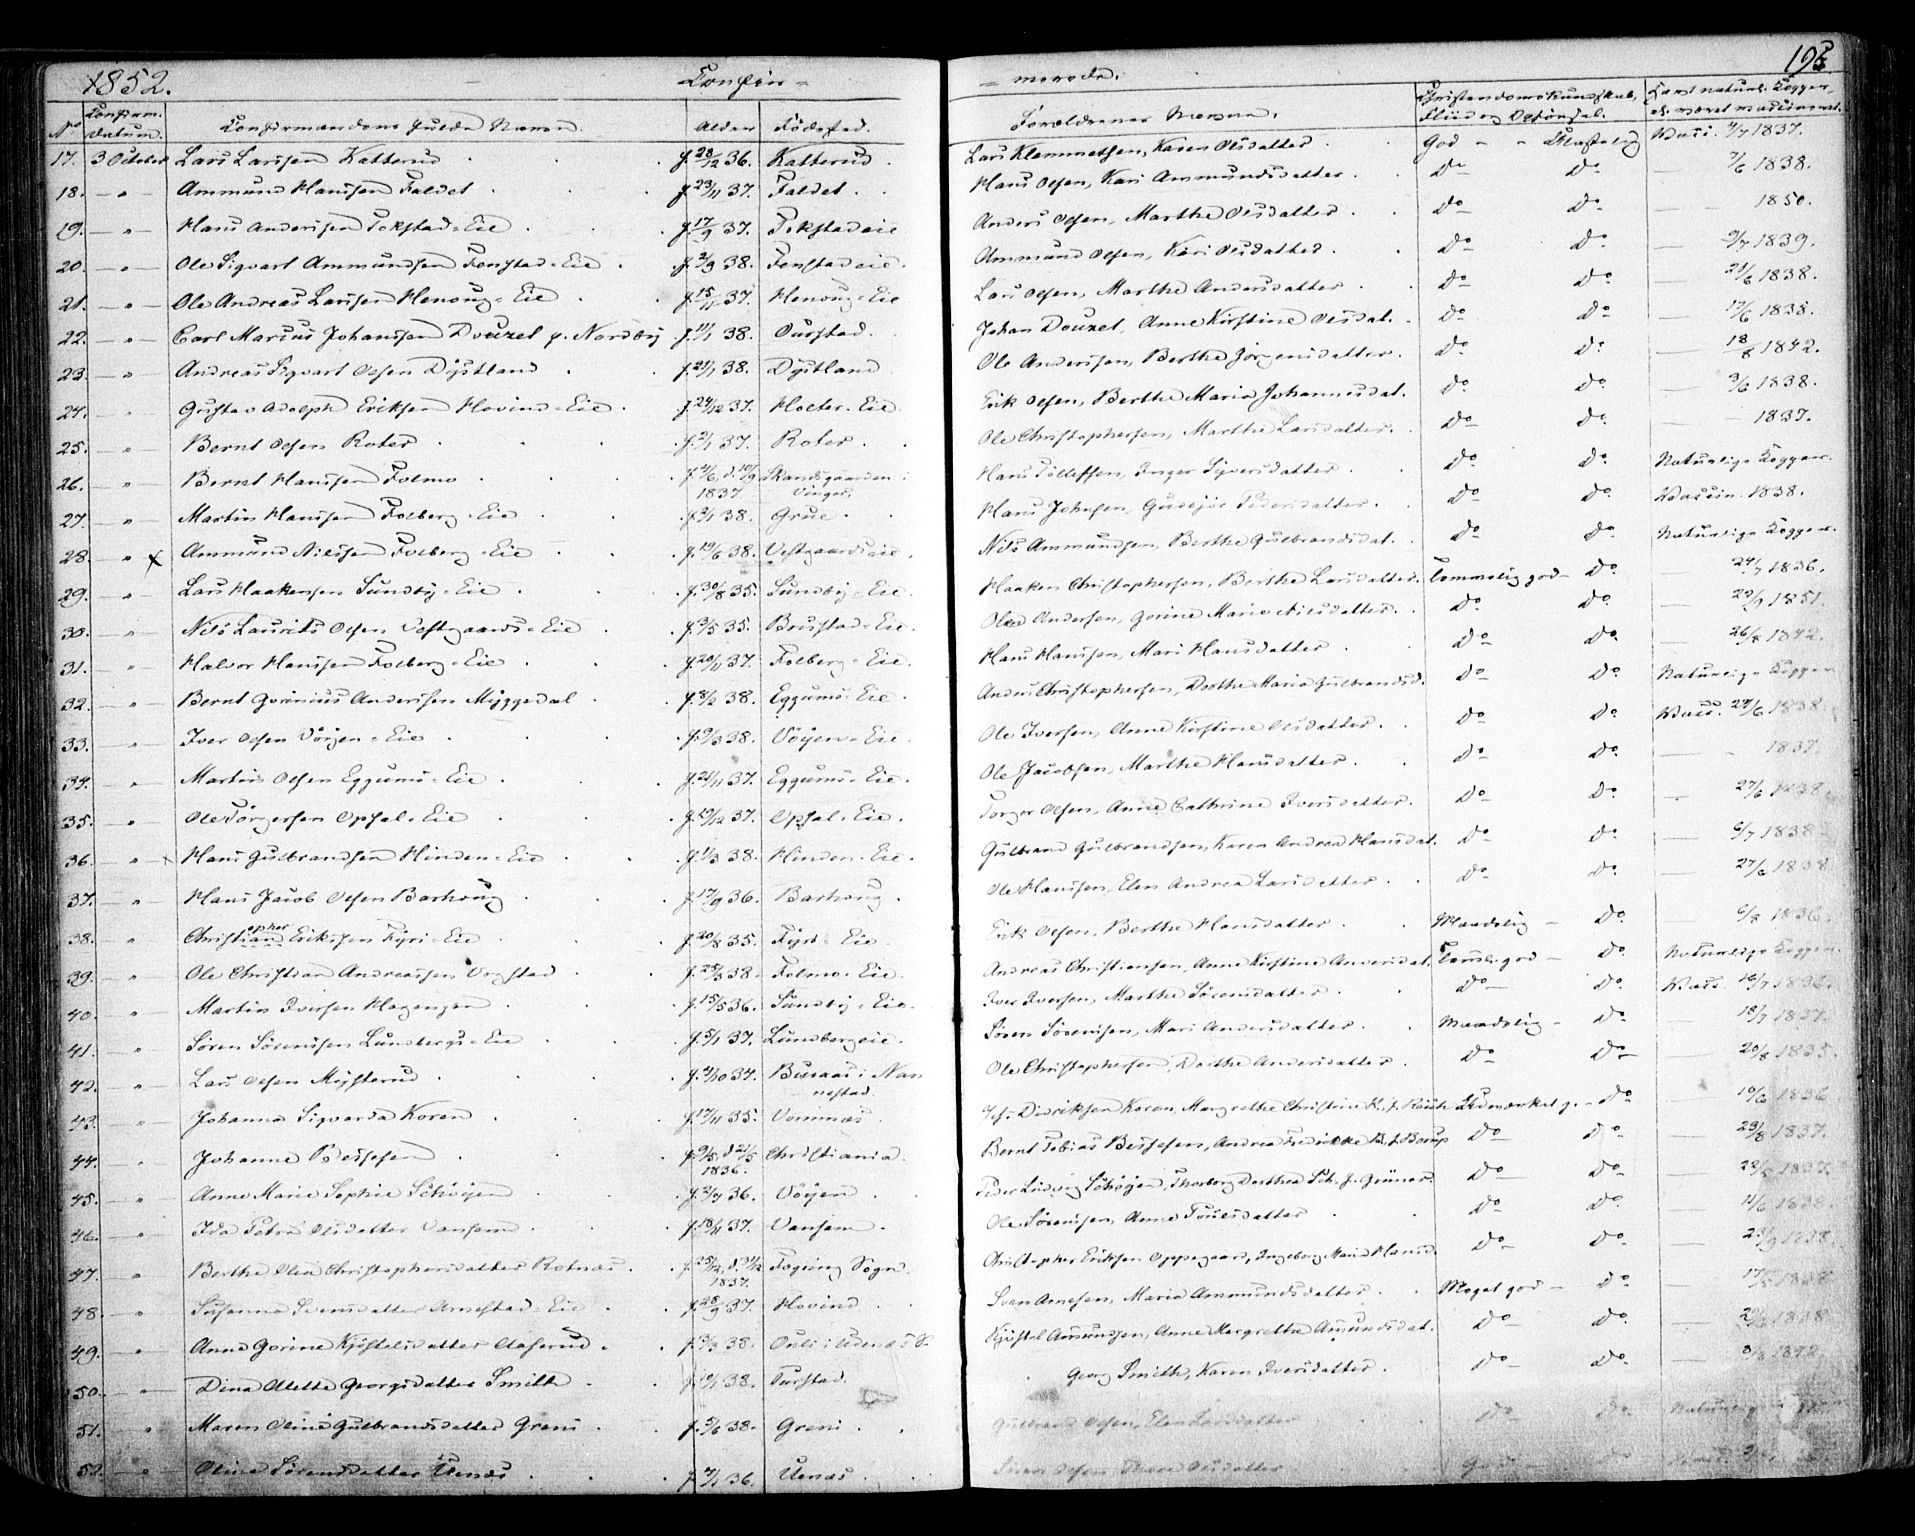 1852. Confir= =merede. 193
No Confirm. datum. Confirmandens fulde Navn. Alder Fødested. Forældrenes Navne. Christendomskundskab, Fliid og Opførsel.
17. 3 October Lars Larssen Katterud f. 28/12 36. Katterud. Lars Klemmetsen, Karen Olsdatter God Vacc. 1837.
18. " Ammund Hanssen Faldet f. 23/11 37. Faldet. Hans Olsen, Kari Ammundsdatter Do Do 7/6 1838.
19. " Hans Anderssen Tokstad=Eie f. 17/9 37. Tokstadeie Anders Olsen, Marthe Olsdatter Do Do 1850.
20. " Ole Sigvart Ammundsen Fenstad=Eie f. 2/9 38. Fenstadeie. Ammund Olsen, Kari Olsdatter Do Do 1839.
21. " Ole Andreas Larssen Henoug=Eie f. 15/11 37. Henoug=Eie Lars Olsen, Marthe Andersdatter Do Do 21/6 1838.
22. " Carl Marius Johanssen Douzel p. Nordby f. 11/1 38. Ourstad. Johan Douzel, Anne Kirstine Olsdat. Do Do 1838.
23. " Andreas Sigvart Olsen Dystland f. 21/1 38. Dystland Ole Anderssen, Berthe Jørgensdatter. Do Do 18/8 1842.
24. " Gustav Adolph Eriksen Hovind=Eie f. 24/12 37. Holter=Eie Erik Olsen, Berthe Maria Johannesdat. Do Do 3/6 1838.
25. " Bernt Olsen Roter f. 2/1 37. Roter. Ole Christophersen, Marthe Larsdatter. Do Do 1837.
26. " Bernt Hanssen Folmo 1837. Skandsgaarden Vinger. Hans Tollefsen, Inger Syversdatter Do Do Naturlige Kopper.
27. " Martin Hanssen Folberg=Eie f. 2/1 38. Grue Hans Johnsen, Pedersdatter Do Do Vaccin. 1838.
28. " x Ammund Nilssen Folberg=Eie f. 19/6 38. Vestgaardseie. Nils Ammundsen, Berthe Gulbrandsdat. Do Do Naturlige Kopper.
29. " Lars Haakenssen Sundby=Eie f. 30/8 35. Sundby=Eie. Haaken Christophersen, Berthe Larsdatter. Temmelig god Do 1836.
30. " Nils Laurits Olsen Vestgaards=Eie f. 3/5 35. Brustad=Eie. Andersen, Gorine Marie Nilsdatter. Do Do 1851.
31. " Halvor Hanssen Folberg=Eie f. 20/11 37. Folberg=Eie. Hans Hanssen, Mari Hansdatter Do Do 1842.
32. " Bernt Gorinius Anderssen Myggedal f. 8/2 38. Eggums=Eie. Anders Christophersen, Dorthe Maria Gulbrandsd. Do Do Naturlige Kopper
33. " Iver Olsen Vöyen=Eie 38. Vöyen=Eie. Ole Iversen, Anne Kirstine Olsdatter. Do Do Vacc. 1838.
34. " Martin Olsen Eggums=Eie f. 21/11 37. Eggums=Eie. Ole Jacobsen, Marthe Hansdatter. Do Do 1837.
35. " Ole Torgersen Opsal=Eie f. 19/12 37. Opsal=Eie. Torger Olsen, Anne Cathrine Iversdatter. Do Do 27/6 1838.
36. " Hans Gulbrandsen Hinden=Eie f. 1/3 38. Hinden=Eie. Gulbrand Gulbrandsen, Karen Andrea Hansdat. Do Do 6/7 1838.
37. " Hans Jacob Olsen Barhoug f. 17/9 36. Barhoug. Ole Hanssen, Elen Andrea Larsdatter Do Do 27/6 1838
38. " Christian opher Erikssen Fyri=Eie f. 20/8 35. Fyri=Eie. Erik Olsen, Berthe Hansdatter Maadelig Do 6/8 1836.
39. " Ole Christian Andreassen Vogstad f. 25/3 38. Folmo=Eie. Andreas Christiansen, Anne Kirstine Andersdat. god Do Naturlige Kopper.
40. " Martin Iversen Hagengen f. 15/5 36. Sundby=Eie. Iver Iversen, Marthe Sörensdatter Do Do Vacc.
41. " Sören Sörenssen Lundbergs=Eie f. 5/1 37. Lundbergeie. Sören Sörenssen, Mari Andersdatter Maadelig Do 18/7 1837.
42. " Lars Olsen Mysterud 34. Nannestad. Ole Christophersen, Dorthe Andersdatter Do Do 20/8 1835.
43. " Johanna Sigvarda Koren f. 17/11 35. Vommæs. Didriksen Koren, Margrethe Christine Udmærket g. Do 19/6 1836
44. " Johanne Bessesen 1836. Christiania. Bernt Tobias Bessesen, Andrea Fredrikke B. f. Borup Do Do 1837.
45. " Anne Marie Sophie Schöyen f. 2/7 36. Vöyen. Peder Ludvig Schöyen, Thorborg Dorthea Sch. f. Grüner. Do Do 1837
46. " Ida Petra Olsdatter Vansem f. 18/11 37. Vansem. Ole Sörenssen, Anne Poulsdatter Do Do 11/6 1838.
47. " Berthe Olea Christophersdatter Rotnæs 1837. Sogn. Christopher Eriksen Oppegaard, Ingeborg Maria Hansd. Do Do 1838.
48. " Susanna Svensdatter Arnestad=Eie f. 28/9 37. Hovind Sven Arnesen, Maria Ammundsdatter Meget god Do 1838
49. " Anne Gorine Kjöstelsdatter f. 3/3 38. Kjöstel Amundsen, Anne Margrethe Amundsdat. Do Do 1838
50. " Dina Alette Georgsdatter Smith 38. Ourstad. Georg Smith, Karen Iversdatter. Do Do 1842.
51. " Maren Oline Gulbrandsdatter Greni f. 5/6 38. Greni. Gulbrand Olsen, Elen Larsdatter Do Do Naturlige
52. " Oline Sörensdatter Uenæs 36. Uenæs Sören Olsen, Olsdatter Do